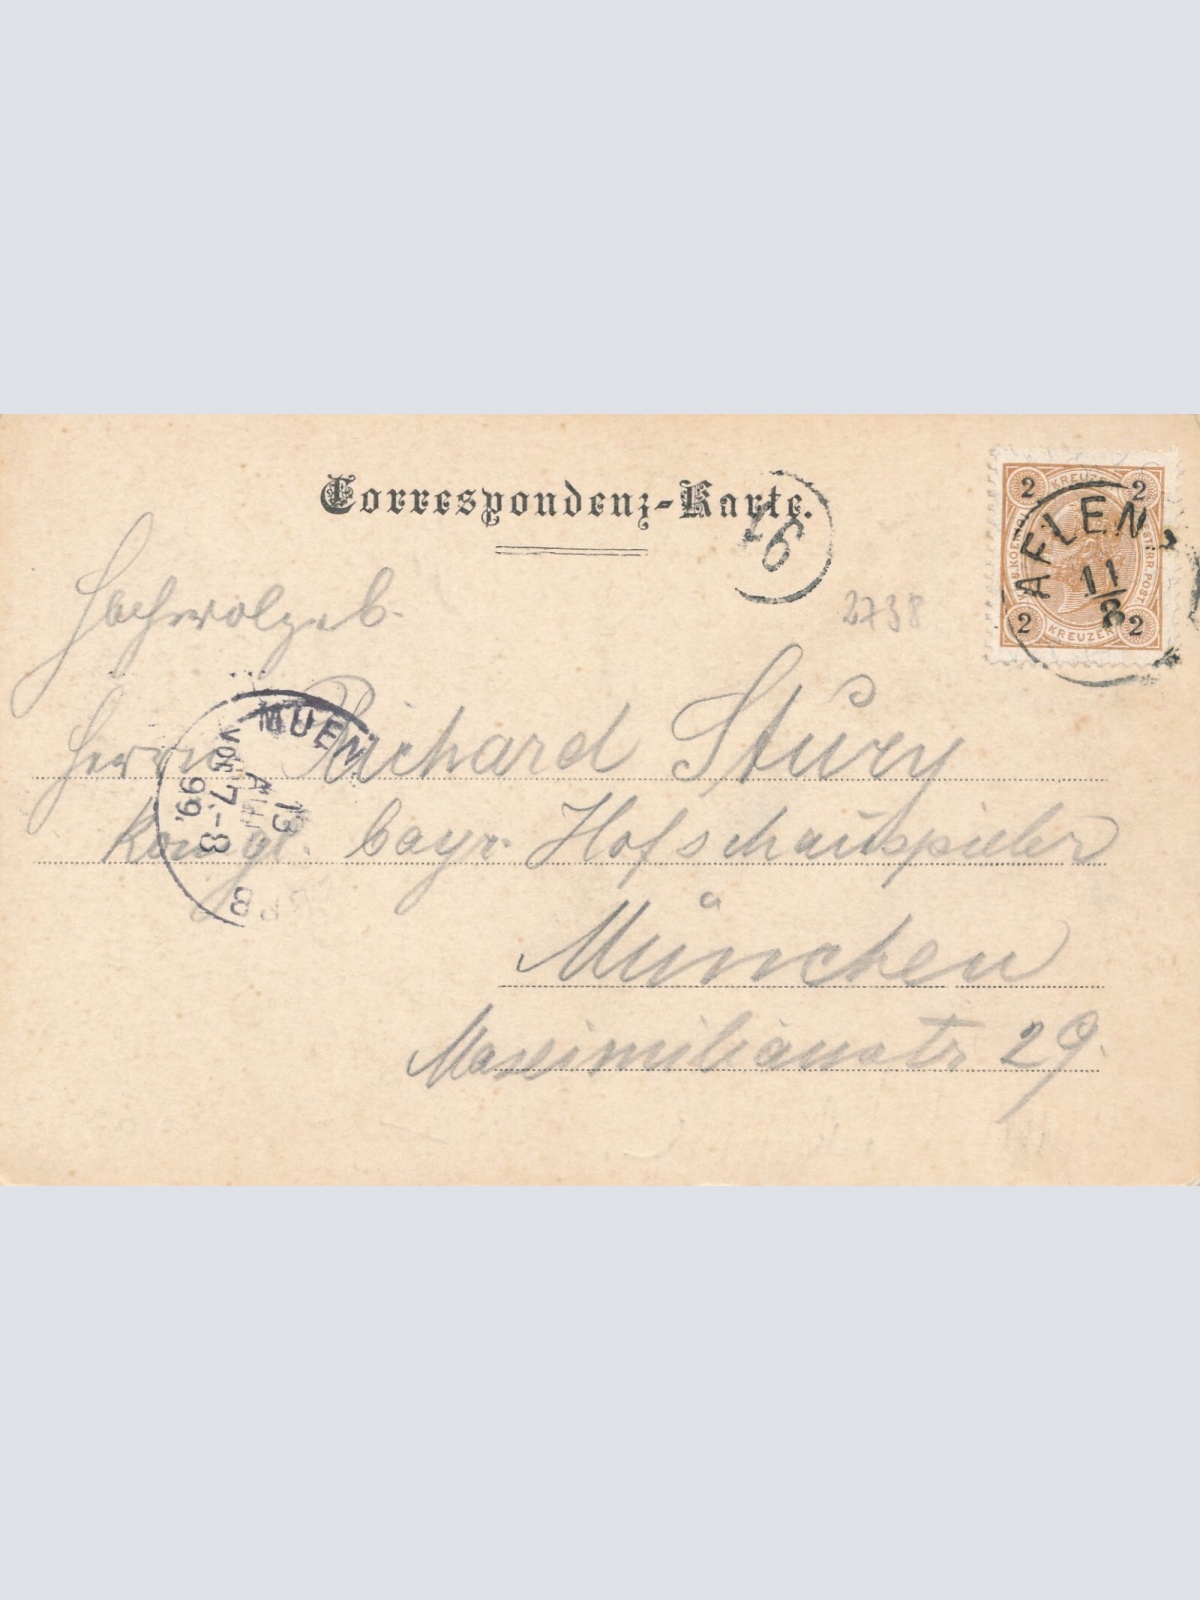 Correspondenz-Karte.
16
2 KREUZER 2
AFLENZ
11/8
2 KREUZER 2
2738
Hochwolgeb.
Herrn Richard Stury
Königl. bayr. Hofschauspieler
München
Maximilianstr 29.
MUEN
13
AUG
VOR 7-8
99.
B